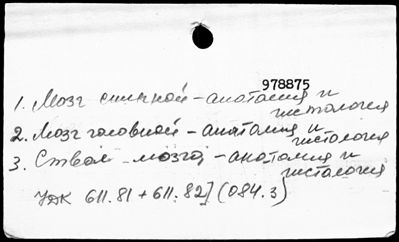 978875
1. Мозг спинной - анатомия и
гистология
2. Мозг головной - анатомия и
гистология
3. Ствол мозга - анатомия и
гистология
УДК 611.81 + 611.82] (084.3)